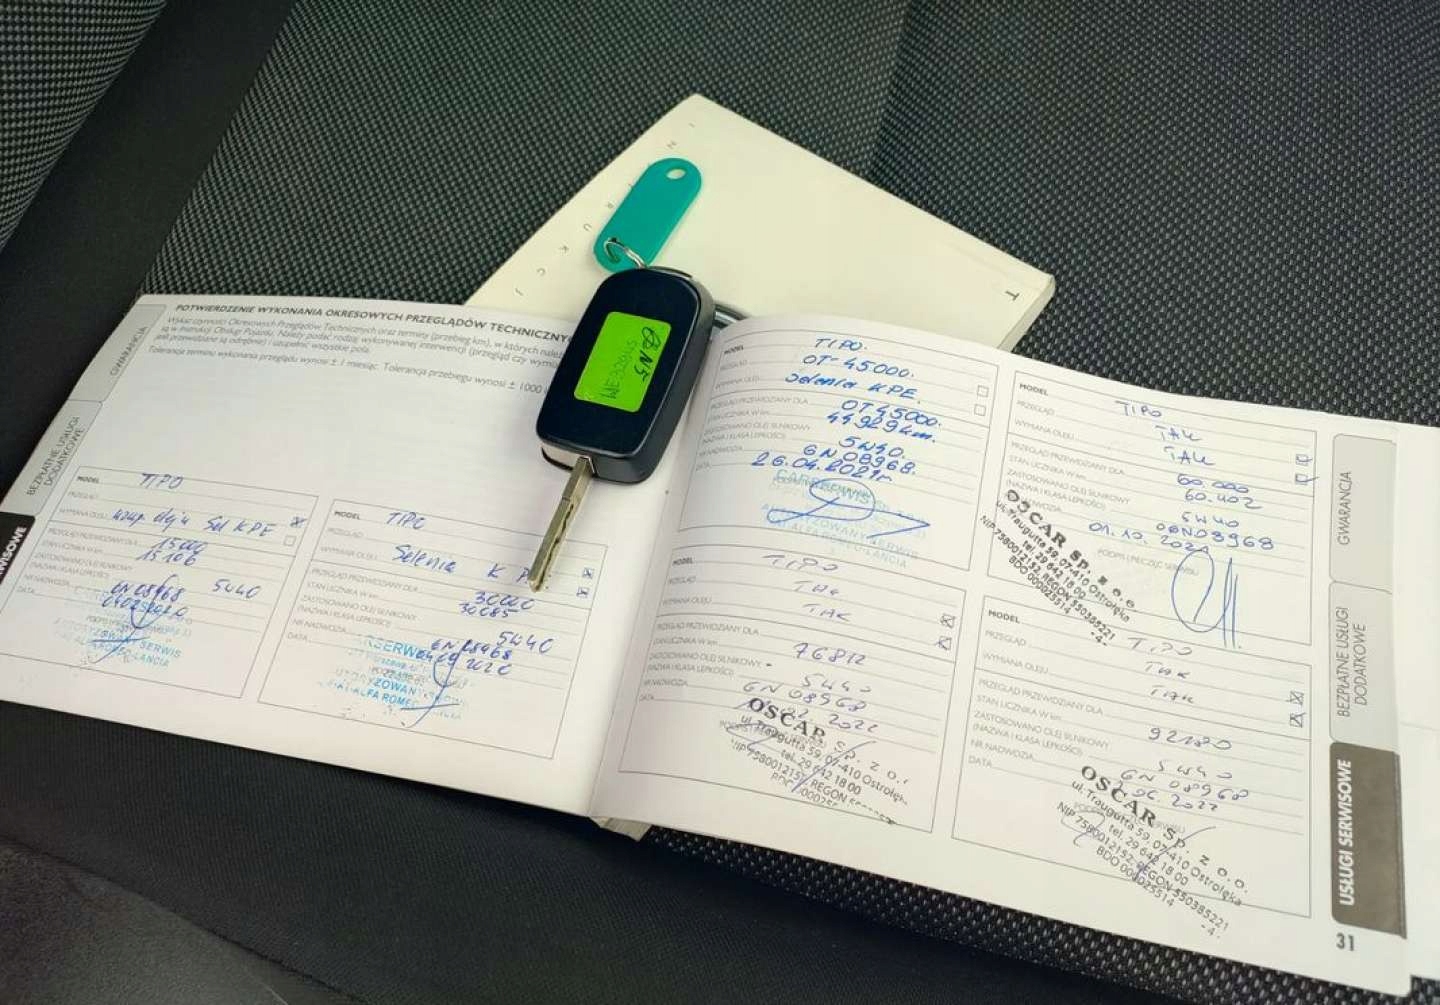 INSTRUKCJ
T
GWARANCJA
BEZPŁATNE USŁUGI
DODATKOWE
WISOWE
POTWIERDZENIE WYKONANIA OKRESOWYCH PRZEGLĄDÓW TECHNICZNY
Wykaz czynności Okresowych Przeglądów Technicznych oraz terminy (przebieg km), w których należ
są w Instrukcji Obsługi Pojazdu. Należy podać rodzaj wykonywanej interwencji (przegląd czy wymia
jeśli przewidziane są odrębnie) i uzupełnić wszystkie pola.
Tolerancja terminu wykonania przeglądu wynosi ± 1 miesiąc. Tolerancja przebiegu wynosi ± 1000
MODEL TIPO
PRZEGLĄD
WYMIANA OLEJU Sel KPE
PRZEGLĄD PRZEWIDZIANY DLA 15000
STAN LICZNIKA W km 15106
ZASTOSOWANO OLEJ SILNIKOWY
(NAZWA I KLASA LEPKOŚCI) 5W40
NR NADWOZIA 6N08968
DATA
AUTORYZOWANY SERWIS
FIAT-ALFA ROMEO-LANCIA
MODEL TIPO
PRZEGLĄD
WYMIANA OLEJU Selenia K P
PRZEGLĄD PRZEWIDZIANY DLA 30000
STAN LICZNIKA W km 30085
ZASTOSOWANO OLEJ SILNIKOWY
(NAZWA I KLASA LEPKOŚCI) 5W40
NR NADWOZIA 6N08968
DATA 2020
CARSERWIS
MODEL TIPO.
PRZEGLĄD OT-45000.
WYMIANA OLEJU Selenia KPE.
PRZEGLĄD PRZEWIDZIANY DLA OT45000.
STAN LICZNIKA W km 44929km.
ZASTOSOWANO OLEJ SILNIKOWY
(NAZWA I KLASA LEPKOŚCI) 5W40.
NR NADWOZIA 6N08968.
DATA 26.04.2021r
CARSERWIS
AUTORYZOWANY SERWIS
FIAT-ALFA ROMEO-LANCIA
MODEL TIPO
PRZEGLĄD TAK
WYMIANA OLEJU TAK
PRZEGLĄD PRZEWIDZIANY DLA 60.000
STAN LICZNIKA W km 60.402
ZASTOSOWANO OLEJ SILNIKOWY
(NAZWA I KLASA LEPKOŚCI) 5W40
NR NADWOZIA 06N08968
DATA 01.10.2021
PODPIS I PIECZĘĆ SERWISU
OSCAR sp. z o.o.
ul. Traugutta 59, 07-410 Ostrołęka
tel. 29 642 18 00
NIP 7580012152, REGON 550385221
BDO 000025514
-4-
MODEL TIPO
PRZEGLĄD TAK
WYMIANA OLEJU TAK
PRZEGLĄD PRZEWIDZIANY DLA
STAN LICZNIKA W km 76812
ZASTOSOWANO OLEJ SILNIKOWY
(NAZWA I KLASA LEPKOŚCI) 5W40
NR NADWOZIA 6N08968
DATA
OSCAR sp. z o.o.
ul. Traugutta 59, 07-410 Ostrołęk
tel. 29 642 18 00
NIP 7580012152, REGON
MODEL TIPO
PRZEGLĄD TAK
WYMIANA OLEJU TAK
PRZEGLĄD PRZEWIDZIANY DLA
STAN LICZNIKA W km 92180
ZASTOSOWANO OLEJ SILNIKOWY
(NAZWA I KLASA LEPKOŚCI) 5W40
NR NADWOZIA 6N08968
DATA
OSCAR sp. z o.o.
ul. Traugutta 59, 07-410 Ostrołęka
tel. 29 642 18 00
NIP 7580012152, REGON 550385221
BDO 000025514
-4-
GWARANCJA
BEZPŁATNE USŁUGI
DODATKOWE
USŁUGI SERWISOWE
31